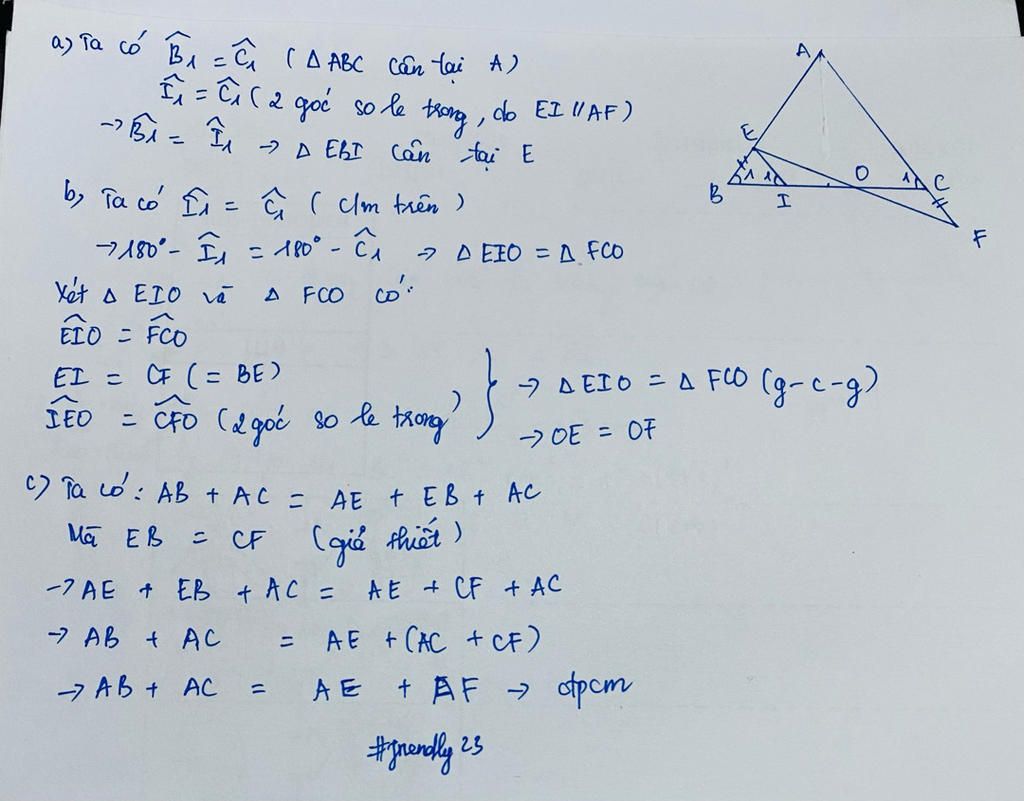 a) Ta có B̂1 = Ĉ1 ( Δ ABC cân tại A )
Î1 = Ĉ1 ( 2 góc so le trong, do EI // AF )
→ B̂1 = Î1 → Δ EBI cân tại E
b, Ta có Î1 = Ĉ1 ( c/m trên )
→ 180° - Î1 = 180° - Ĉ1 → Δ EIO = Δ FCO
Xét Δ EIO và Δ FCO có:
ÊIO = F̂CO
EI = CF ( = BE )
ÎEO = ĈFO ( 2 góc so le trong )
→ Δ EIO = Δ FCO ( g-c-g )
→ OE = OF
c) Ta có: AB + AC = AE + EB + AC
Mà EB = CF ( giả thiết )
→ AE + EB + AC = AE + CF + AC
→ AB + AC = AE + (AC + CF)
→ AB + AC = AE + AF → đpcm
A
E
B 1 1 I O 1 C
F